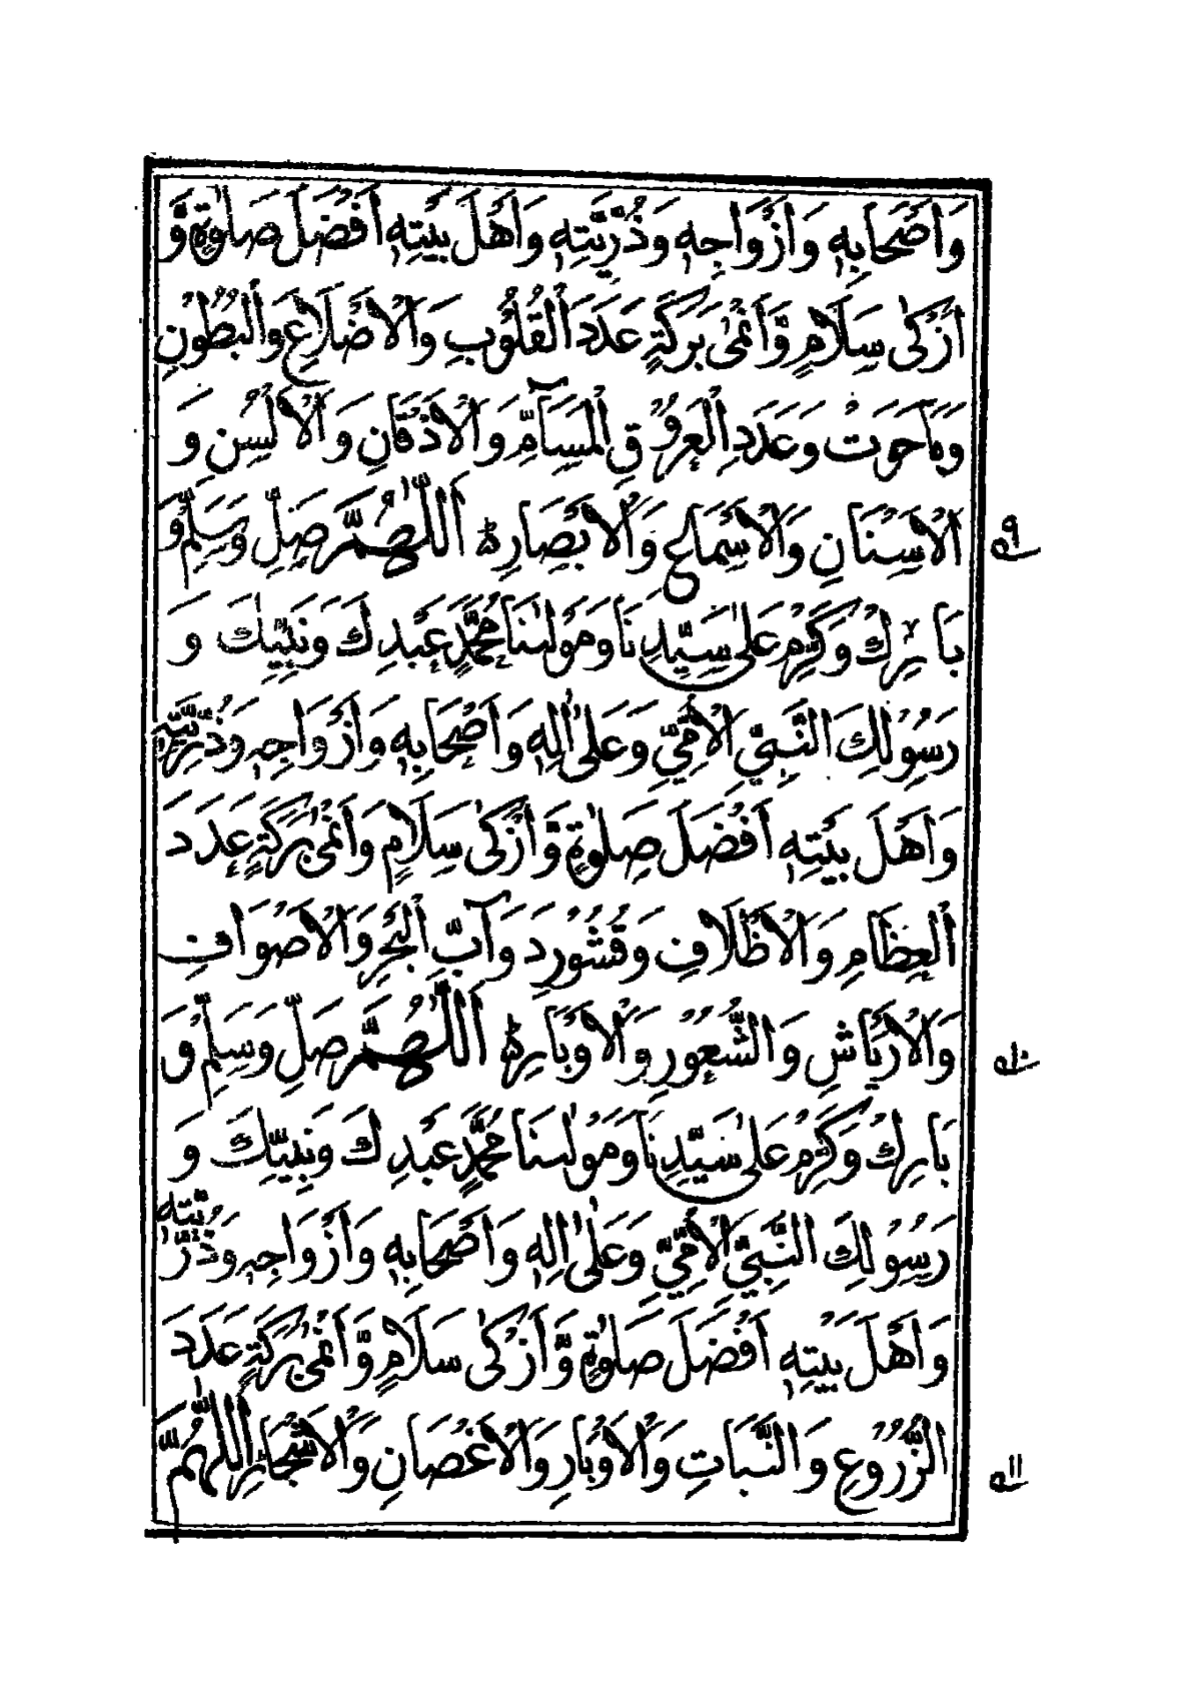 وَاَصْحَابِهٖ وَاَزْوَاجِهٖ وَذُرِّيَّتِهٖ وَاَهْلَ بَيْتِهٖ اَفْضَلَ صَلٰوةٍ وَّ
اَزْكٰى سَلَامٍ وَّاَنْمٰى بَرَكَةٍ عَدَدَ الْقُلُوْبِ وَالْاَضْلَاعِ وَالْبُطُوْنِ
وَمَا حَوَتْ وَعَدَدِ الْعُرُوْقِ الْمَسَآمِّ وَالْاَذْقَانِ وَالْاَلْسِنِ وَ
الْاَسْنَانِ وَالْاَسْمَاعِ وَالْاَبْصَارِ ہ اَللّٰهُمَّ صَلِّ وَسَلِّمْ وَ
بَارِكْ وَكَرِّمْ عَلٰى سَيِّدِنَا وَمَوْلٰىنَا مُحَمَّدٍ عَبْدِكَ وَنَبِيِّكَ وَ
رَسُوْلِكَ النَّبِيِّ الْاُمِّيِّ وَعَلٰى اٰلِهٖ وَاَصْحَابِهٖ وَاَزْوَاجِهٖ وَذُرِّيَّتِهٖ
وَاَهْلَ بَيْتِهٖ اَفْضَلَ صَلٰوةٍ وَّاَزْكٰى سَلَامٍ وَاَنْمٰى بَرَكَةٍ عَدَدَ
الْعِظَامِ وَالْاَظْلَافِ وَقُشُوْرِ دَوَآبِّ الْبَحْرِ وَالْاَصْوَافِ
وَالْاَرْيَاشِ وَالشُّعُوْرِ وَالْاَوْبَارِ ہ اَللّٰهُمَّ صَلِّ وَسَلِّمْ وَ
بَارِكْ وَكَرِّمْ عَلٰى سَيِّدِنَا وَمَوْلٰىنَا مُحَمَّدٍ عَبْدِكَ وَنَبِيِّكَ وَ
رَسُوْلِكَ النَّبِيِّ الْاُمِّيِّ وَعَلٰى اٰلِهٖ وَاَصْحَابِهٖ وَاَزْوَاجِهٖ وَذُرِّيَّتِهٖ
وَاَهْلَ بَيْتِهٖ اَفْضَلَ صَلٰوةٍ وَّاَزْكٰى سَلَامٍ وَّاَنْمٰى بَرَكَةٍ عَدَدَ
الزُّرُوْعِ وَالنَّبَاتِ وَالْاَوْبَارِ وَالْاَغْصَانِ وَالْاَشْجَارِ اَللّٰهُمَّ
٩
١٠
١١